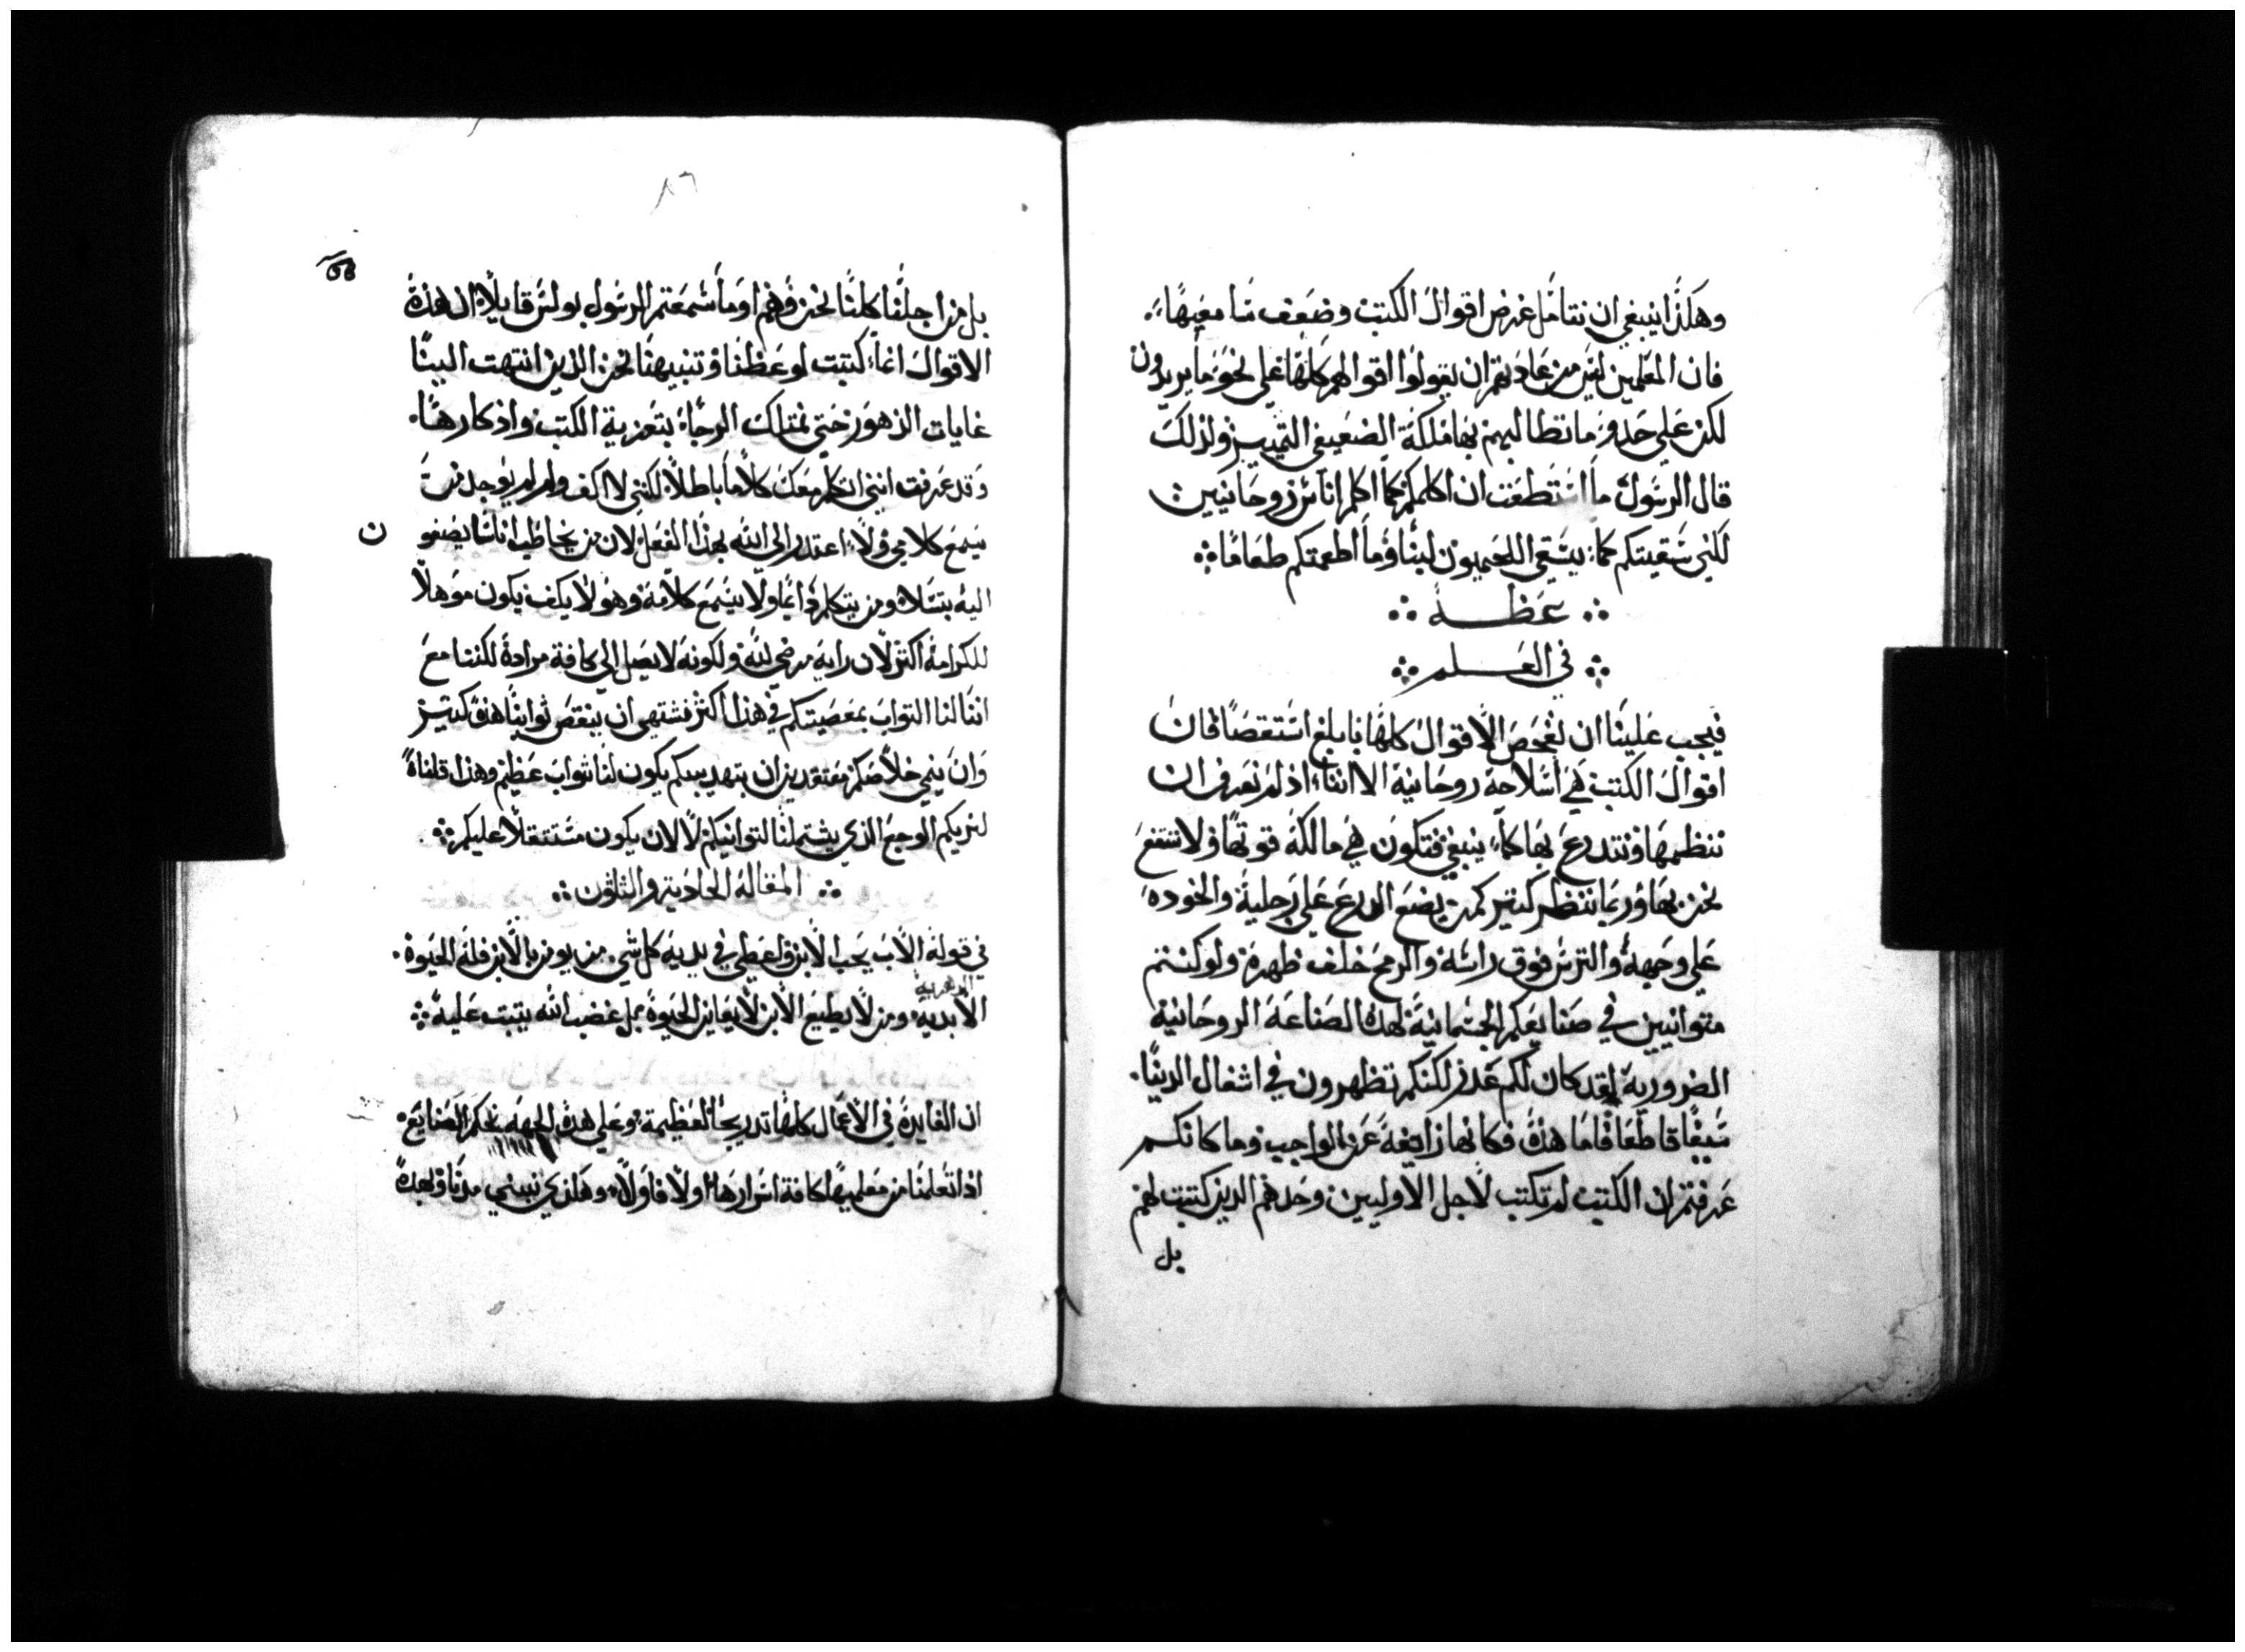 وهكذا ينبغي ان نتامل غرض اقوال الكتب وضعف سامعيها
فان المعلمين ليس من عادتهم ان يقولوا اقوالهم كلها على نحو ما يريدون
لكن على حذو ما تطالبهم بها ملكة الضعيفي التمييز ولذلك
قال الرسول ما استطعت ان اكلمكم كما اكلم اناس روحانيين
لكني سقيتكم كما يستقي اللحميون لبنا وما اطعمتكم طعاما
عظة
في العلم
فيجب علينا ان نفحص الاقوال كلها بابلغ استقصا فان
اقوال الكتب هي اسلاحة روحانية الا اننا اذ لم نعرف ان
ننظمها ونتدرع بها كما ينبغي فتكون هي مالكة قوتها ولا ننتفع
نحن بها وربما ننظر كتير كمن يضع الدرع على رجلية والخوده
على وجهة والترس فوق راسة والرمح خلف ظهرة ولو كنتم
متوانيين في صنايعكم الجسمانية لهذه الصناعة الروحانية
الضرورية لقد كان لكم عذر لكنكم تظهرون في اشغال الدنيا
سيفا قاطعا فاما هذه فكانها زايغة عن الواجب وما كانكم
عرفتم ان الكتب لم تكتب لاجل الاوليين وحدهم الدين كتبت لهم
بل
٨٦
بل من اجلنا كلنا نحن وهم اوما سمعتم الرسول بولس قايلا ان هذه
الاقوال انما كتبت لوعظنا وتنبيهنا نحن الذين انتهت الينا
غايات الدهور حتى نمتلك الرجا بتعزية الكتب واذكارها
وقد عرفت انني اتكلم معكم كلاما باطلا لكنني لا اكف ولو لم يوجد من
يسمع كلامي ولا اعتدر الى الله بهذا الفعل لان من يخاطب اناسا يصغون
اليه بتسلاه ومن يتكلم دايما ولا يسمع كلامه وهو لا يكف يكون موهلا
للكرامة اكتر لان رايه مرضي لله ولكونه لا يصل الى كافة مرادة لكننا مع
اننا لنا التواب بمعصيتكم في هذا اكتر نشتهي ان ينقص توابنا هذه كتير
وان ينمي خلاصكم معتقدين ان بتهديبكم يكون لنا تواب عظيم وهذا قلناه
لنريكم الوجع الذي يشتملنا لتوانيكم لا لان يكون مستتقلا عليكم
المقالة الحادية والتلتون
في قوله الاب يحب الابن واعطى في يديه كل شي من يومن بالابن فله الحيوة
الابديه ومن لا يطيع الابن لا يعاين الحيوة بل غضب الله يتبت عليه
ان الفايدة في الاعمال كلها تدريجا لعظيمة وعلى هذه الجهه نحكم الصنايع
اذا تعلمنا من معلميها كافة اسرارها اولا فاولا وهكذي نبني مدنا واحدة